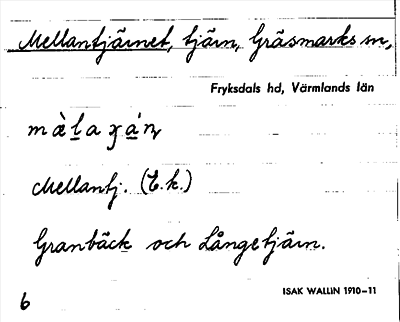 Mellantjärnet, tjärn, Gräsmarks sn,
Fryksdals hd, Värmlands län
Mellantj. (E.k.)
Granbäck och Långetjärn.
ISAK WALLIN 1910–11
6